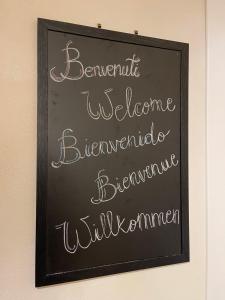 Benvenuti
Welcome
Bienvenido
Bienvenue
Willkommen